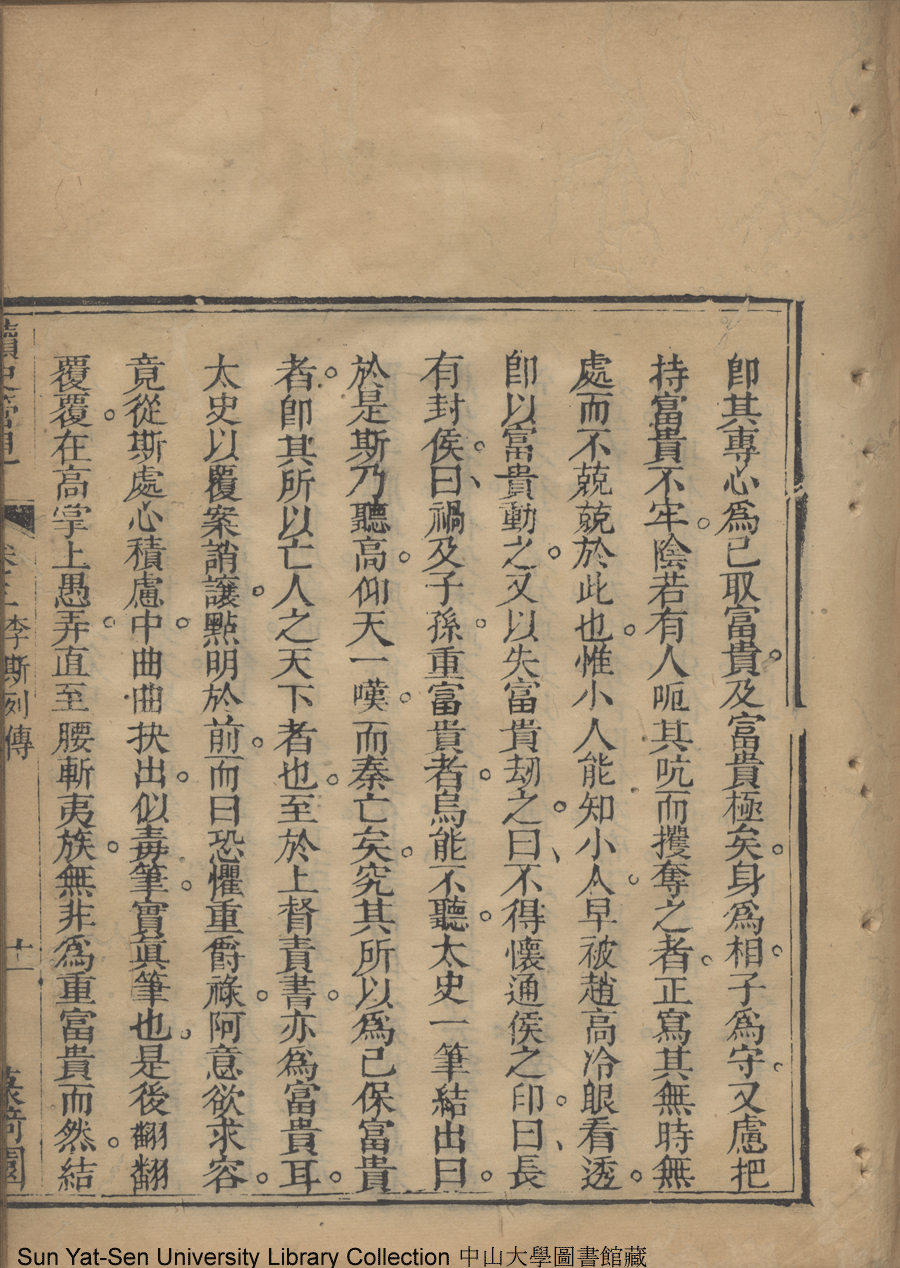 卽其專心爲己取富貴。及富貴極矣。身爲相。子爲守。又慮把
持富貴不牢。陰若有人呃其吭而攫奪之者。正寫其無時無
處而不兢兢於此也。惟小人能知小人。早被趙高冷眼看透。
卽以富貴動之。又以失富貴刼之。曰、不得懷通侯之印。曰、長
有封侯。曰、禍及子孫。重富貴者。烏能不聽。太史一筆結出曰。
於是斯乃聽高。仰天一嘆。而秦亡矣。究其所以爲己保富貴
者。卽其所以亡人之天下者也。至於上督責書。亦爲富貴耳。
太史以覆案誚讓。點明於前。而曰恐懼重爵祿。阿意欲求容。
竟從斯處心積慮中。曲曲抉出。似毒筆。實眞筆也。是後翻翻
覆覆。在高掌上愚弄。直至腰斬夷族。無非爲重富貴而然。結
讀史管見 李斯列傳 十一